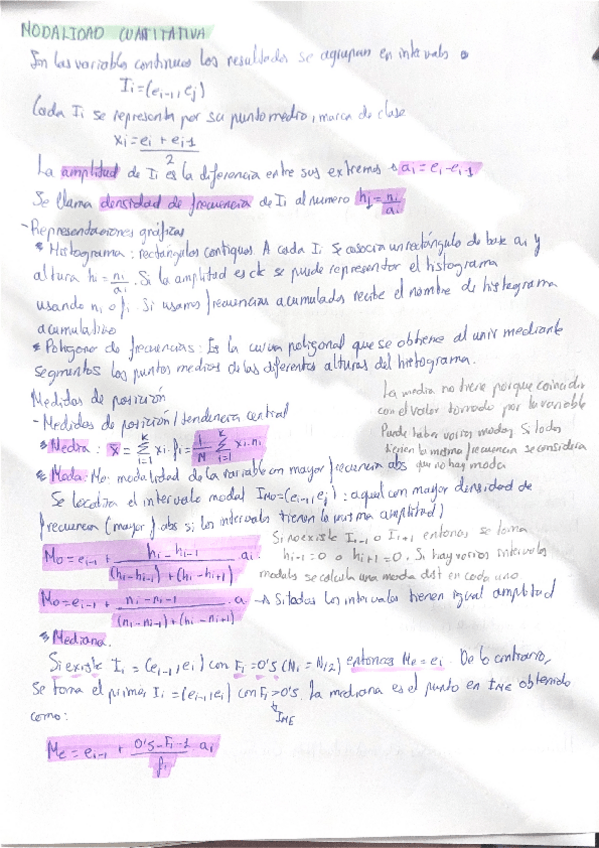 MODALIDAD CUANTITATIVA
En las variables continuas los resultados se agrupan en intervalos
Ii=(ei-1, ej)
Cada Ii se representa por su punto medio, marca de clase
xi = ei + ei-1 / 2
La amplitud de Ii es la diferencia entre sus extremos → ai = ei - ei-1
Se llama densidad de frecuencia de Ii al numero hi = ni/ai
- Representaciones gráficas
* Histograma: rectángulos contiguos. A cada Ii se asocia un rectángulo de base ai y
altura hi = ni/ai. Si la amplitud es ck se puede representar el histograma
usando ni o fi. Si usamos frecuencias acumuladas recibe el nombre de histograma
acumulativo
* Polígono de frecuencias: Es la curva poligonal que se obtiene al unir mediante
segmentos los puntos medios de las diferentes alturas del histograma.
Medidas de posición
- Medidas de posición / tendencia central
* Media: x̄ = Σ(i=1, k) xi·fi = 1/N Σ(i=1, k) xi·ni
La media no tiene porque coincidir
con el valor tomado por la variable
Puede haber varias modas. Si todos
tienen la misma frecuencia se considera
que no hay moda
* Moda: Mo: modalidad de la variable con mayor frecuencia abs
Se localiza el intervalo modal IMO=(ei-1, ej): aquel con mayor densidad de
frecuencia (mayor f abs si los intervalos tienen la misma amplitud)
Mo = ei-1 + hi - hi-1 / (hi-hi-1) + (hi-hi+1) ai
Si no existe Ii-1 o Ii+1 entonces se toma
hi-1=0 o hi+1=0. Si hay varios intervalos
modales se calcula una moda dist en cada uno
Mo = ei-1 + ni - ni-1 / (ni-ni-1) + (ni-ni+1) a → Si todos los intervalos tienen igual amplitud
* Mediana.
Si existe Ii = (ei-1, ei) con Fi = 0'5 (Ni = N/2) entonces Me = ei. De lo contrario,
se toma el primer Ii = (ei-1, ei) con Fi > 0'5. La mediana es el punto en IME obtenido
IME
como:
Me = ei-1 + 0'5 - Fi-1 / fi ai